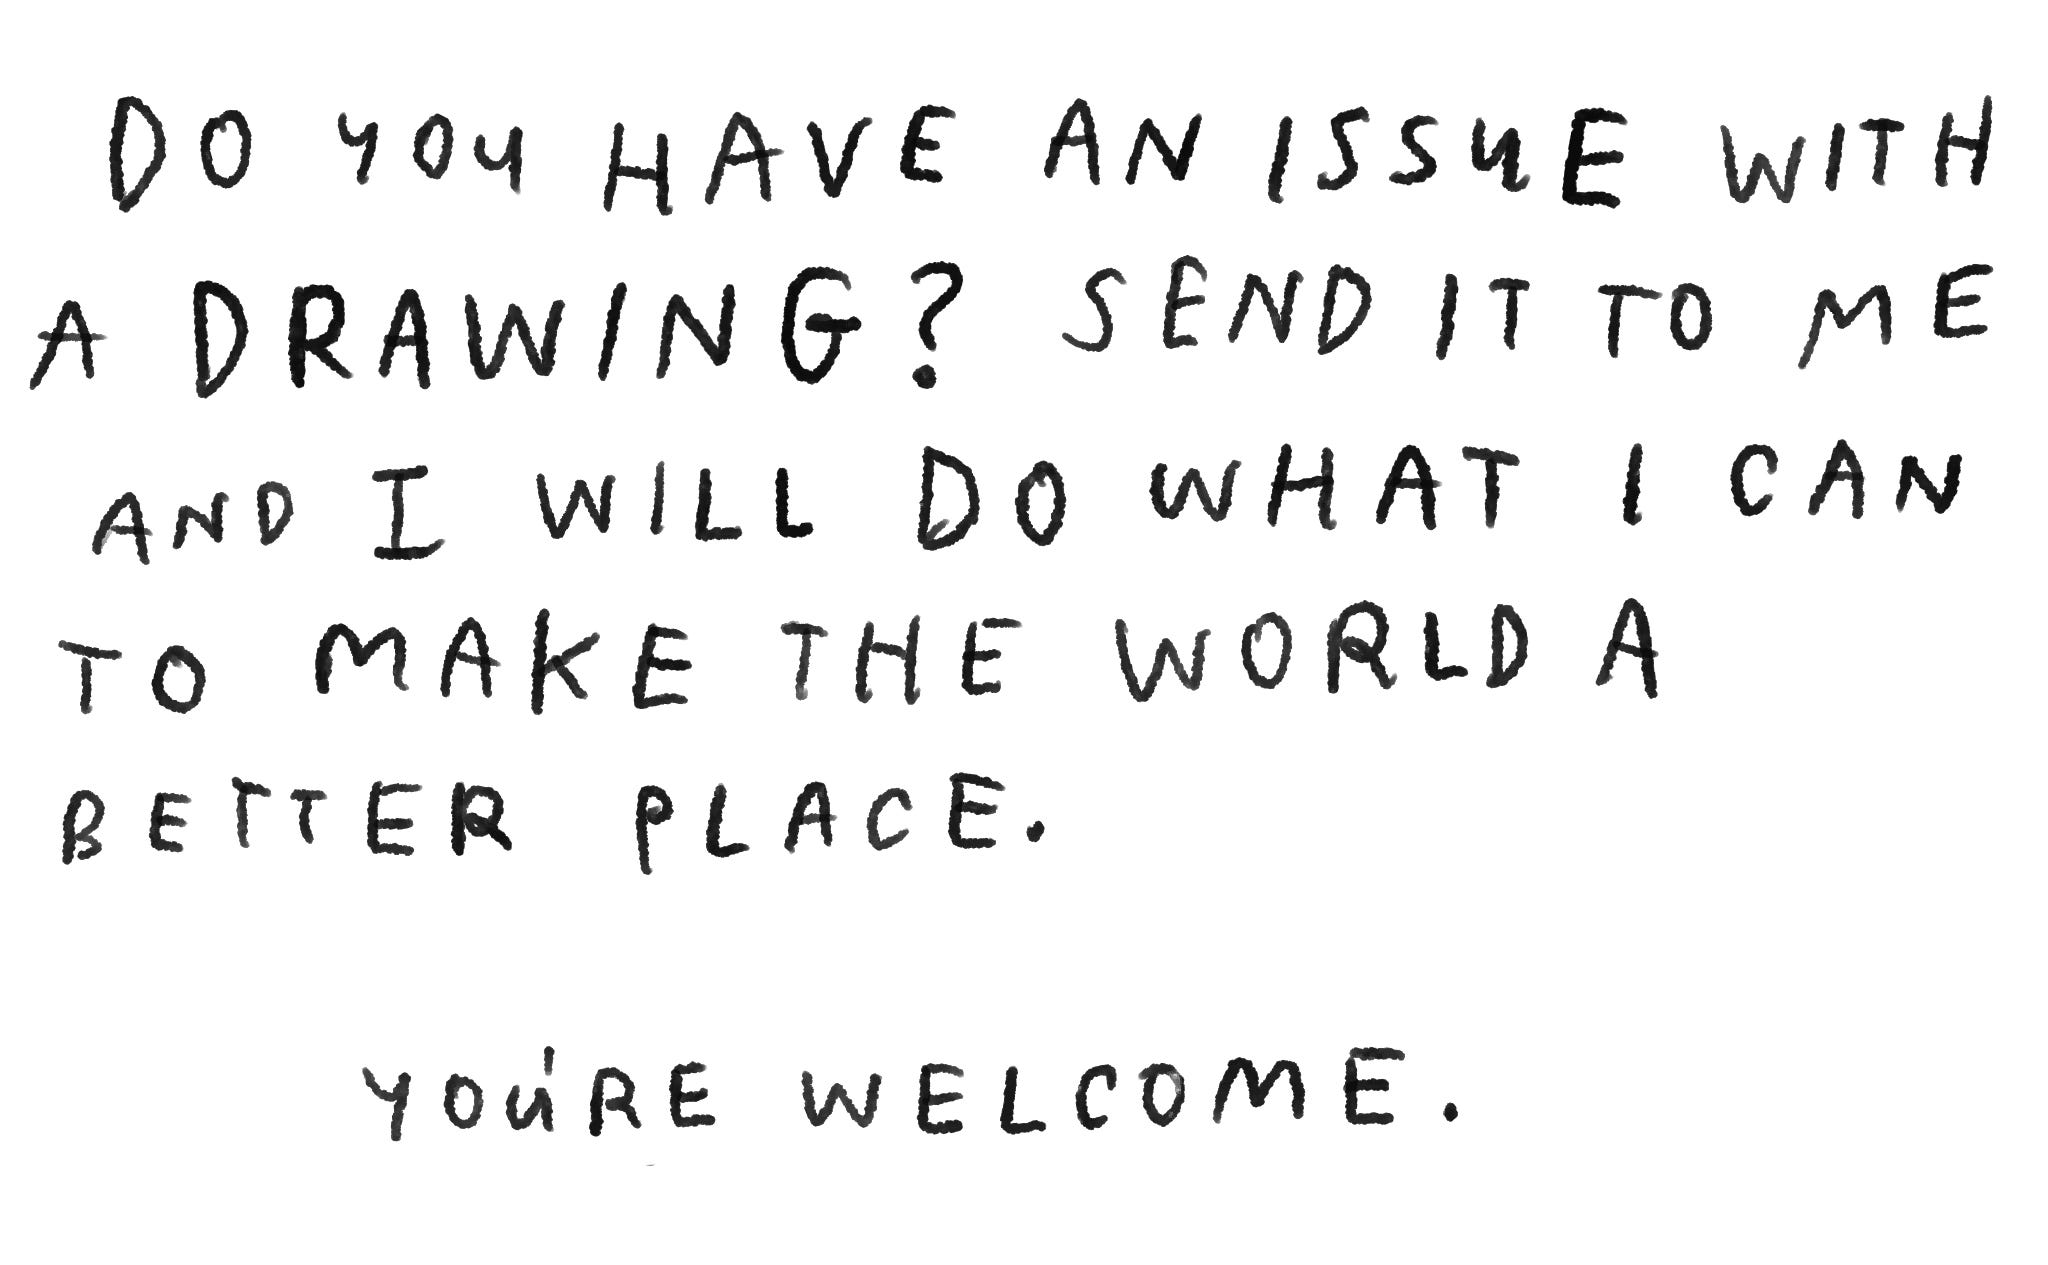 DO YOU HAVE AN ISSUE WITH
A DRAWING? SEND IT TO ME
AND I WILL DO WHAT I CAN
TO MAKE THE WORLD A
BETTER PLACE.
YOU'RE WELCOME.